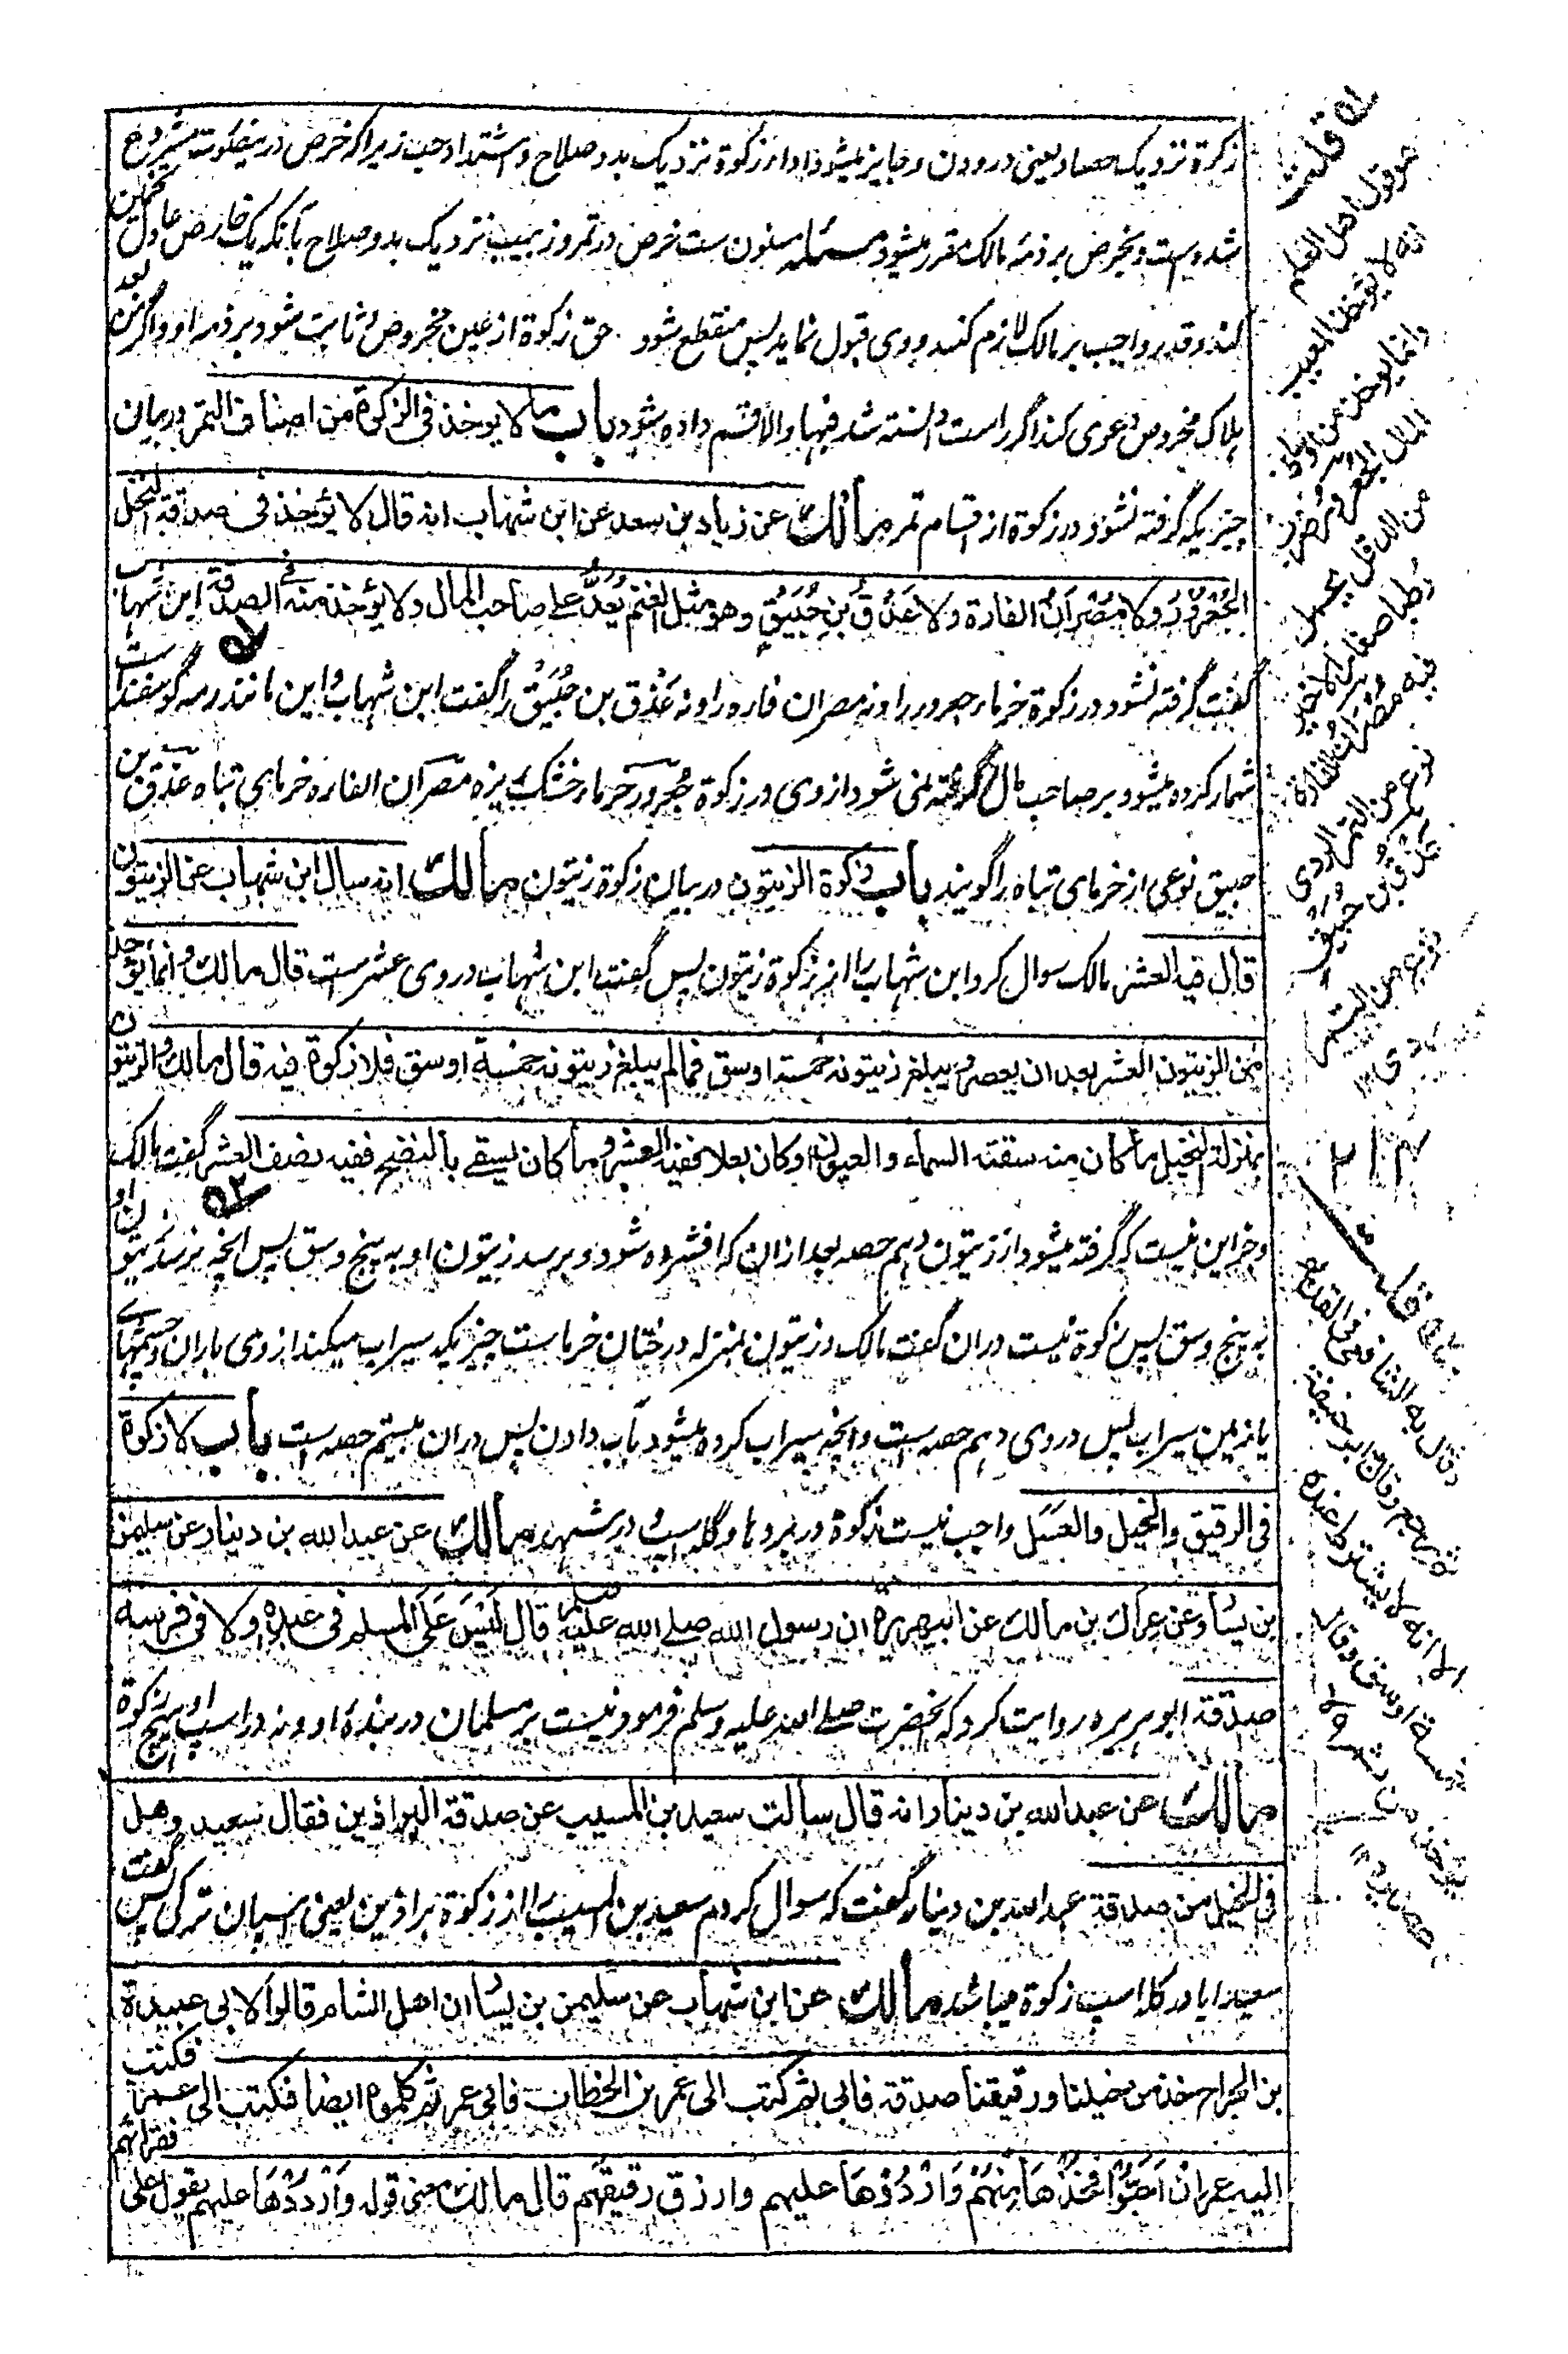 زکوة نزدیک حصاد یعنی درودن و جایز میشود اداء زکوة نزدیک بدو صلاح و اشتداد حب زیراکه خرص درینصورت مشروع
شده است و بخرص بر ذمه مالک مقرر میشود مسئله مسنون ست خرص در تمر و زبیب نزدیک بدو صلاح بآنکه یک خارص عادل تخمین
کند و قدر واجب بر مالک لازم کند و وی قبول نماید پس منقطع شود حق زکوة از عین مخروص و ثابت شود بر ذمه او و اگر من بعد
هلاک مخروص دعوی کند اگر راست دانسته شد فبها والا قسم داده شود باب ما لا یوخذ فی الزکوة من اصناف التمر در بیان
چیزیکه گرفته نشود در زکوة از اقسام تمر مالك عن زیاد بن سعد عن ابن شهاب انه قال لا یؤخذ فی صدقة النخل
الجُعْرُوْرُ ولا مُصْرَانُ الفارة ولا عَذْقُ بْنِ حُبَیْقٍ وهو مثل الغنم یُعَدُّ علی صاحب المال ولا یؤخذ منه فی الصدقة ابن شهاب
گفت گرفته نشود در زکوة خرما، جعرور را و نه مصران فاره را و نه عَذْق بن حُبَیْق را گفت ابن شهاب و این مانند رمه گوسفند است
شمار کرده میشود بر صاحب مال و گرفته نمی شود از وی در زکوة جُعرور خرما، خشک ریزه مصران الفاره خرمای تباه عذق بن
حبیق نوعی از خرمای تباه را گویند باب زکوة الزیتون در بیان زکوة زیتون مالك انه سال ابن شهاب عن الزیتون
قال فیه العشر مالک سوال کرد ابن شهاب را از زکوة زیتون پس گفت ابن شهاب در وی عشرست قال مالك وانما یؤخذ
من الزیتون العشر بعد ان یعصر ویبلغ زیتونه خمسة اوسق فما لم یبلغ زیتونه خمسة اوسق فلا زکوة فیه قال مالك والزیتون
بمنزلة النخیل ما کان منه سقته السماء والعیون او کان بعلا ففیه العشر وما کان یسقی بالنضح ففیه نصف العشر گفت مالک
و جز این نیست که گرفته میشود از زیتون دهم حصه بعد ازان که افشرده شود و برسد زیتون او به پنج وسق پس انچه نرسد زیتون او
به پنج وسق پس زکوة نیست دران گفت مالک و زیتون بمنزله درختان خرماست چیزیکه سیراب میکند از وی باران و چشمهای
یا زمین سیراب پس در وی دهم حصه است و انچه سیراب کرده میشود بآب دادن پس دران بیستم حصه است باب لا زکوة
فی الرقیق والخیل والعسل واجب نیست زکوة در بردها و گله اسپ و در شهد مالك عن عبد الله بن دینار عن سلیمن
بن یسار وعن عراك بن مالك عن ابیهریرة ان رسول الله صلی الله علیه وسلم قال لَیْسَ عَلَی المسلم فی عبده ولا فی فرسه
صدقة ابو هریره روایت کرد که آنحضرت صلی الله علیه وسلم فرمود نیست بر مسلمان در بندهٔ او و نه در اسپ او هیچ زکوة
مالك عن عبد الله بن دینار انه قال سالت سعید بن المسیب عن صدقة البراذین فقال سعید وهل
فی الخیل من صدقة عبد الله بن دینار گفت که سوال کردم سعید بن المسیب را از زکوة براذین یعنی اسپان ترکی پس گفت
سعید ایا در گله اسپ زکوة میباشد مالك عن ابن شهاب عن سلیمن بن یسار ان اهل الشام قالوا لابی عبیدة
بن الجراح خذ من خیلنا ورقیقنا صدقة فابی ثم کتب الی عمر بن الخطاب فابی عمر ثم کلموه ایضا فکتب الی عمر فکتب
الیه عمر ان اَحَبُّوا فَخُذْهَا مِنْهُمْ وَارْدُدْهَا علیهم وارزق رقیقهم قال مالك معنی قوله وَارْدُدْهَا علیهم یقول علی فقرائهم
قلت
هو قول اهل العلم
انه لا یوخذ العیب
وانما یوخذ من اوساط
المال الجعرور ضرب
من الدقل یحمل
رطبا صغارا لا خیر
فیه مصران الفارة
نوع من التمر الردی
عذق بن حبیق
نوع من التمر
ردی ۱۲
قلت
وقال به الشافعی فی القدیم
ثم رجع وقال ابو حنیفة
الا انه لا یشترط عنده
خمسة اوسق وقال